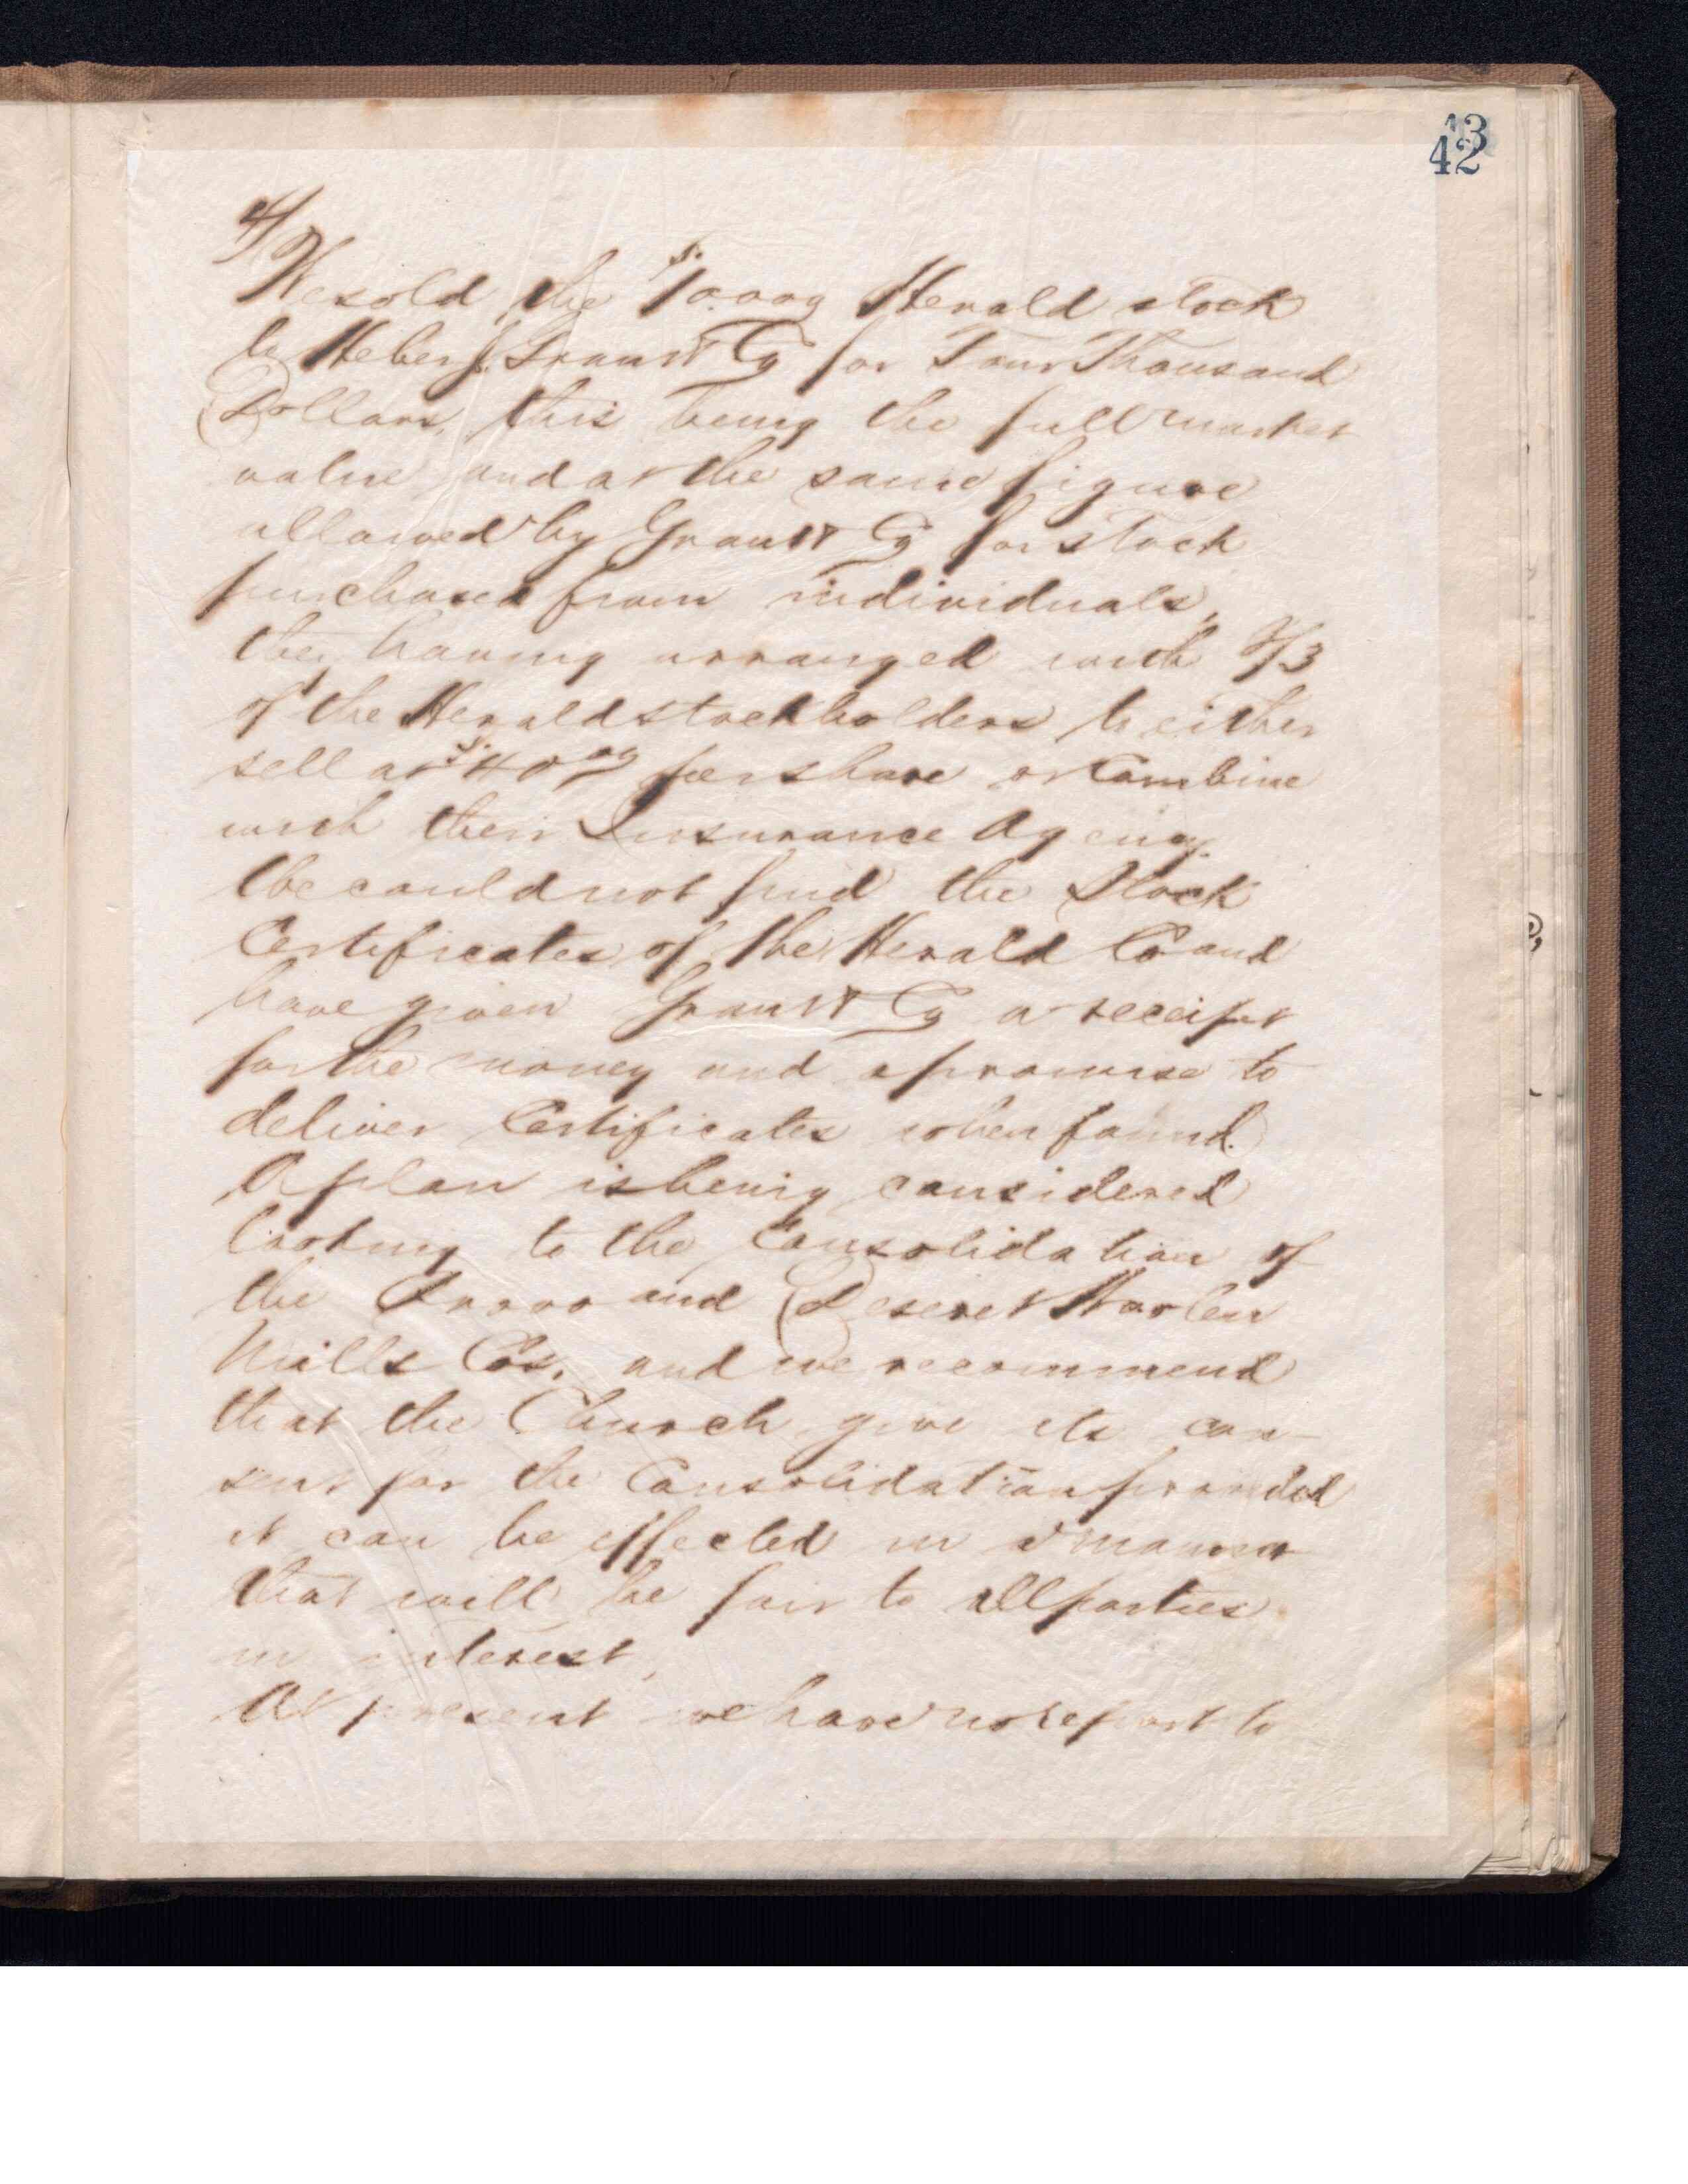 43
42
4/
We sold the $10.000 Herald stock
to Heber J. Grant & Co for Four Thousand
Dollars, this being the full market
value and at the same figure
allowed by Grant & Co for stock
purchased from individuals,
they having arranged with 2/3
of the Herald stockholders to either
sell at $40 00 per share or Combine
with their Insurance Agency.
We could not find the Stock
Certificates of the Herald Co and
have given Grant & Co a receipt
for the money and a promise to
deliver Certificates when found.
A plan is being considered
looking to the Consolidation of
the Provo and Deseret Woolen
Mills Cos. and we recommend
that the Church give its con-
sent for the Consolidation provided
it can be effected in a manner
that will be fair to all parties
in interest,
At present we have no report to